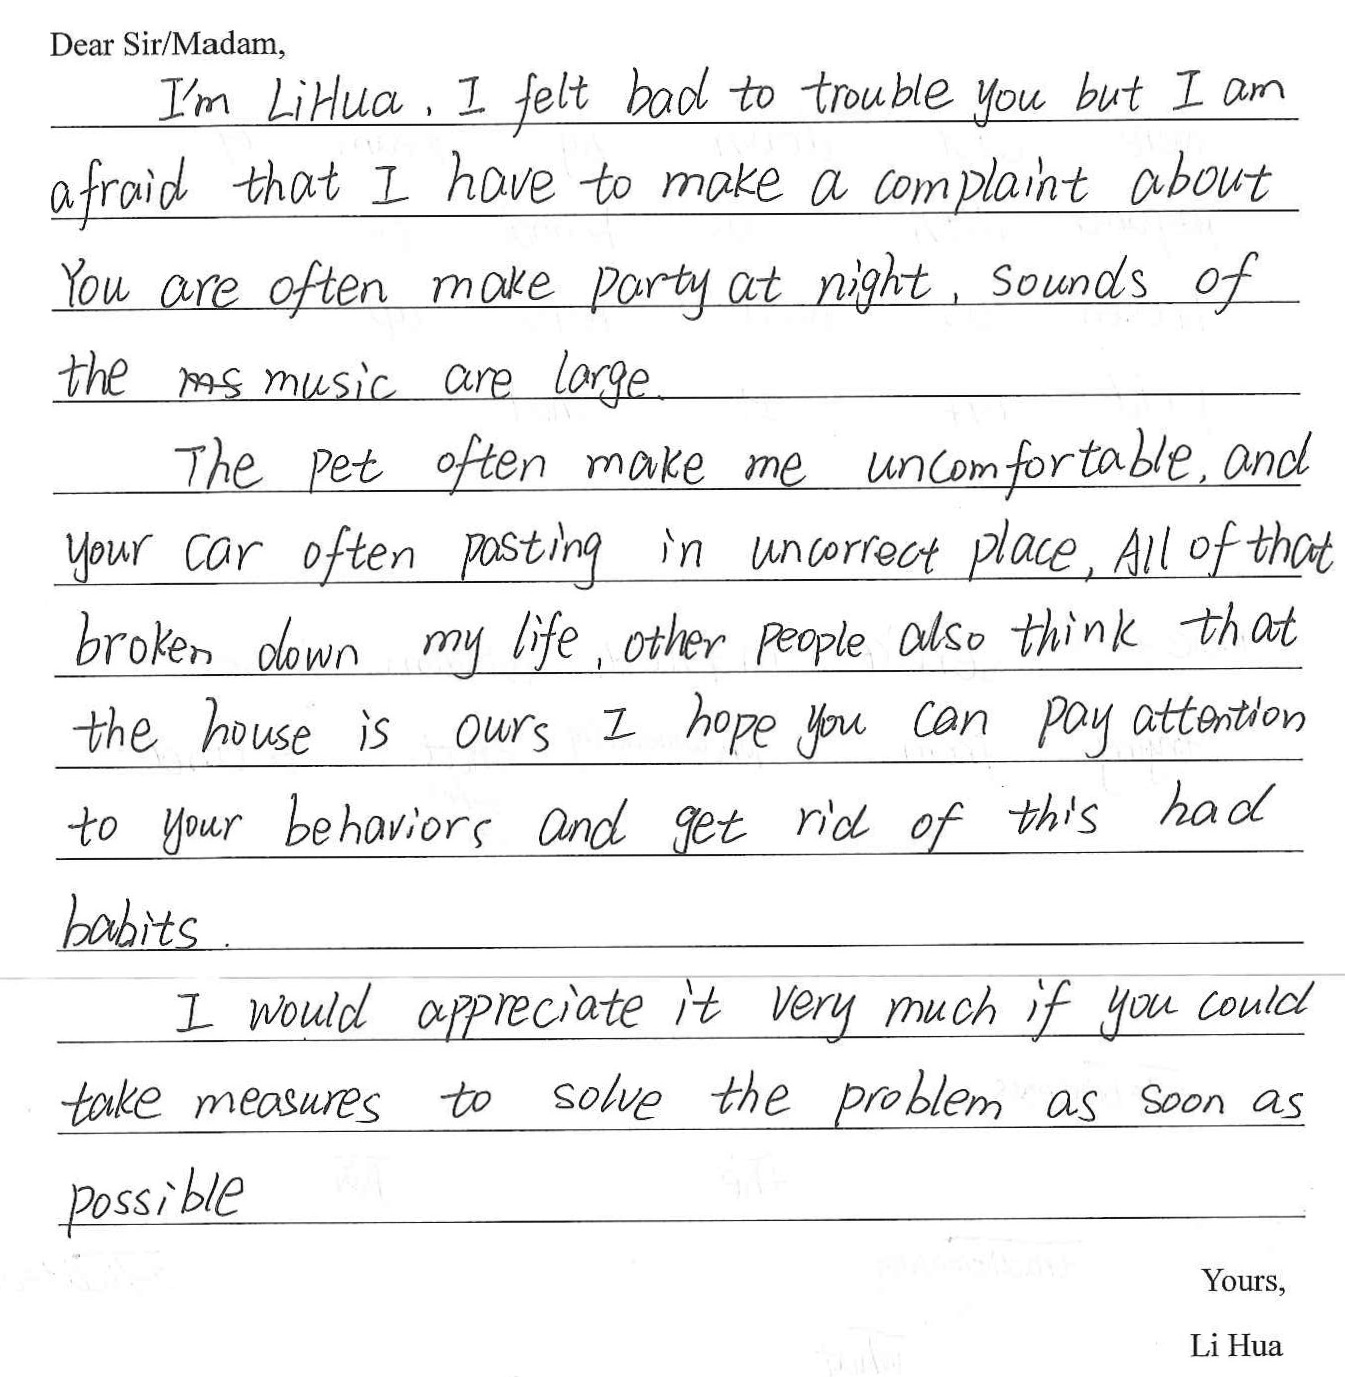 Dear Sir/Madam,
I'm LiHua, I felt bad to trouble you but I am
afraid that I have to make a complaint about
You are often make party at night, sounds of
the music are large.
The pet often make me uncomfortable, and
your car often posting in uncorrect place, All of that
broken down my life, other people also think that
the house is ours I hope you can pay attention
to your behaviors and get rid of this had
babits.
I would appreciate it very much if you could
take measures to solve the problem as soon as
possible
Yours,
Li Hua